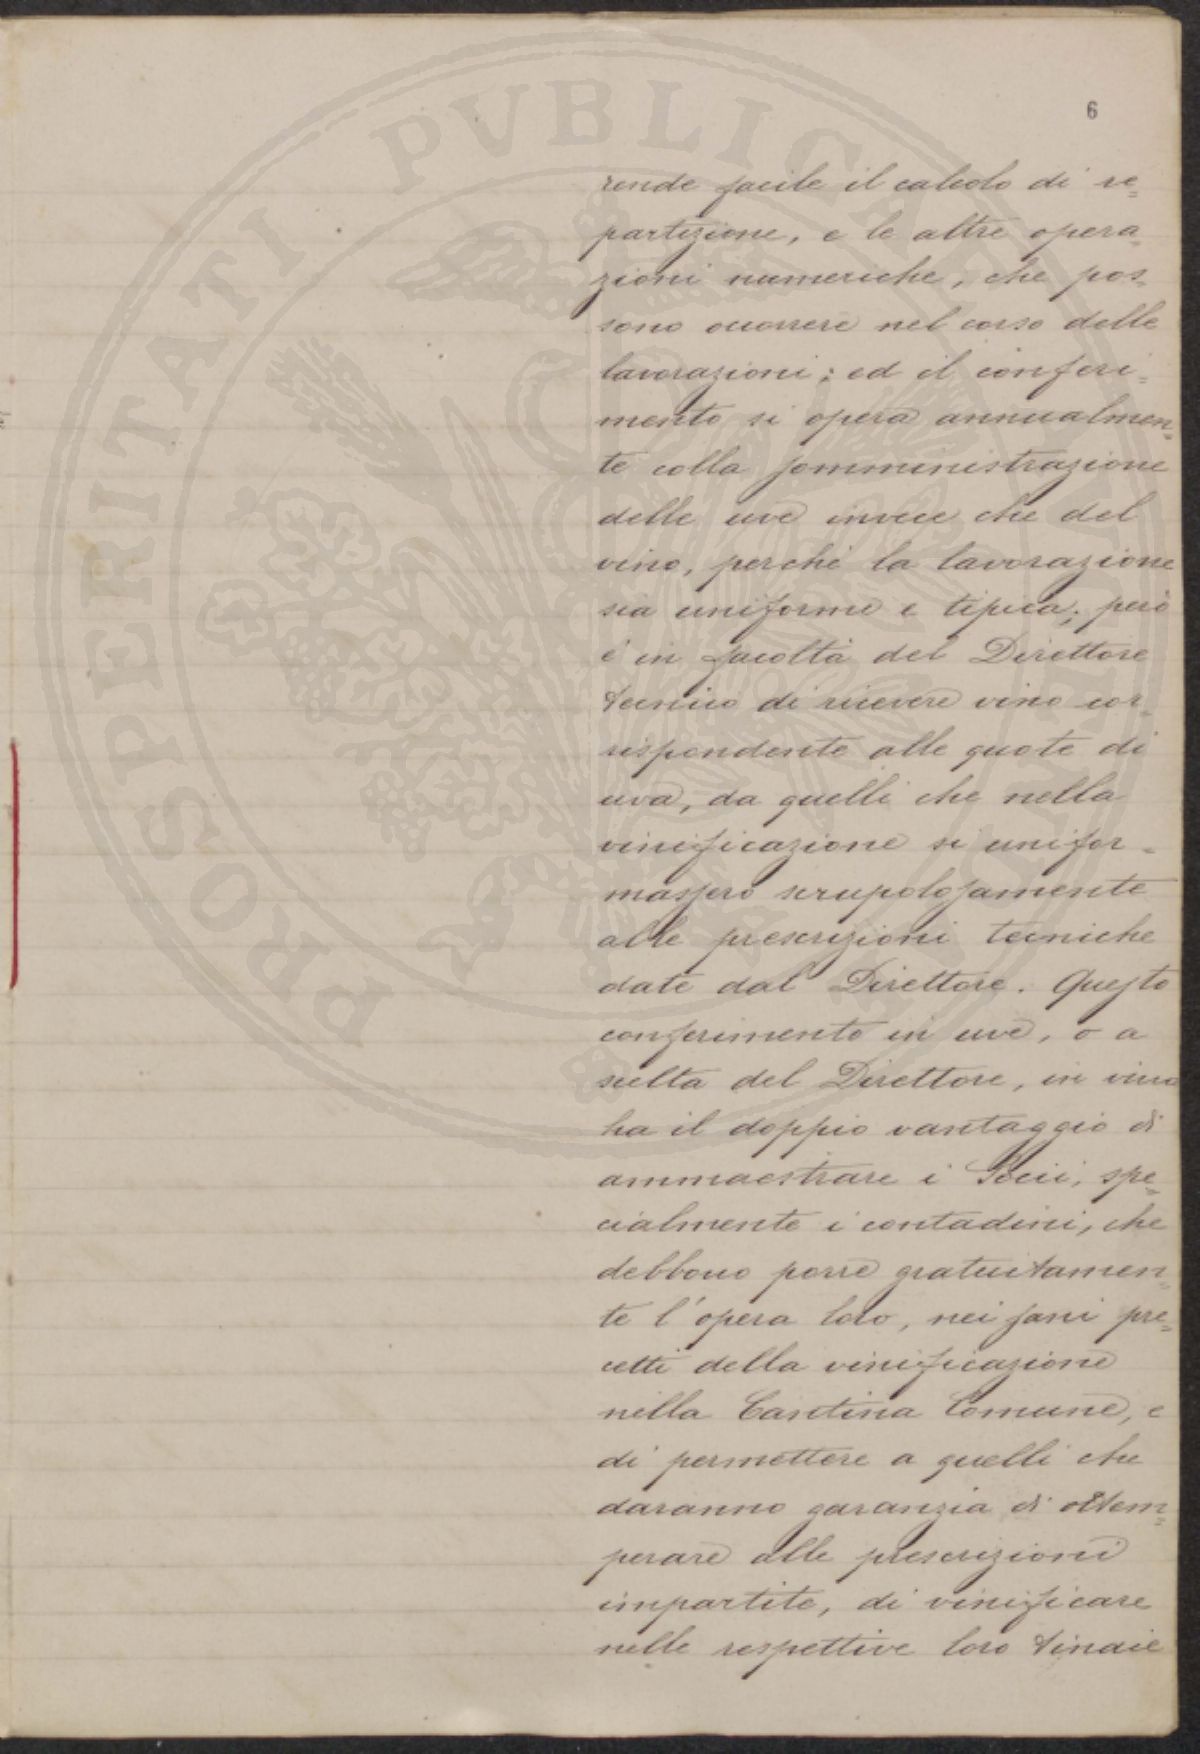 PROSPERITATI PVBLICAE AVGENDAE
6
rende facile il calcolo di re=
partizione, e le altre opera
zioni numeriche, che pos=
sono occorrere nel corso delle
lavorazioni; ed il conferi=
mento si opera annualmen=
te colla somministrazione
delle uve invece che del
vino, perchè la lavorazione
sia uniforme e tipica; però
è in facoltà del Direttore
tecnico di ricevere vino cor=
rispondente alle quote di
uva, da quelli che nella
vinificazione si unifor=
massero scrupolosamente
alle prescrizioni tecniche
date dal Direttore. Questo
conferimento in uve, o a
scelta del Direttore, in vino
ha il doppio vantaggio di
ammaestrare i Socii, spe=
cialmente i contadini, che
debbono porre gratuitamen=
te l'opera loro, nei sani pre=
cetti della vinificazione
nella Cantina Comune, e
di permettere a quelli che
daranno garanzia di ottem=
perare alle prescrizioni
impartite, di vinificare
nelle respettive loro tinaie